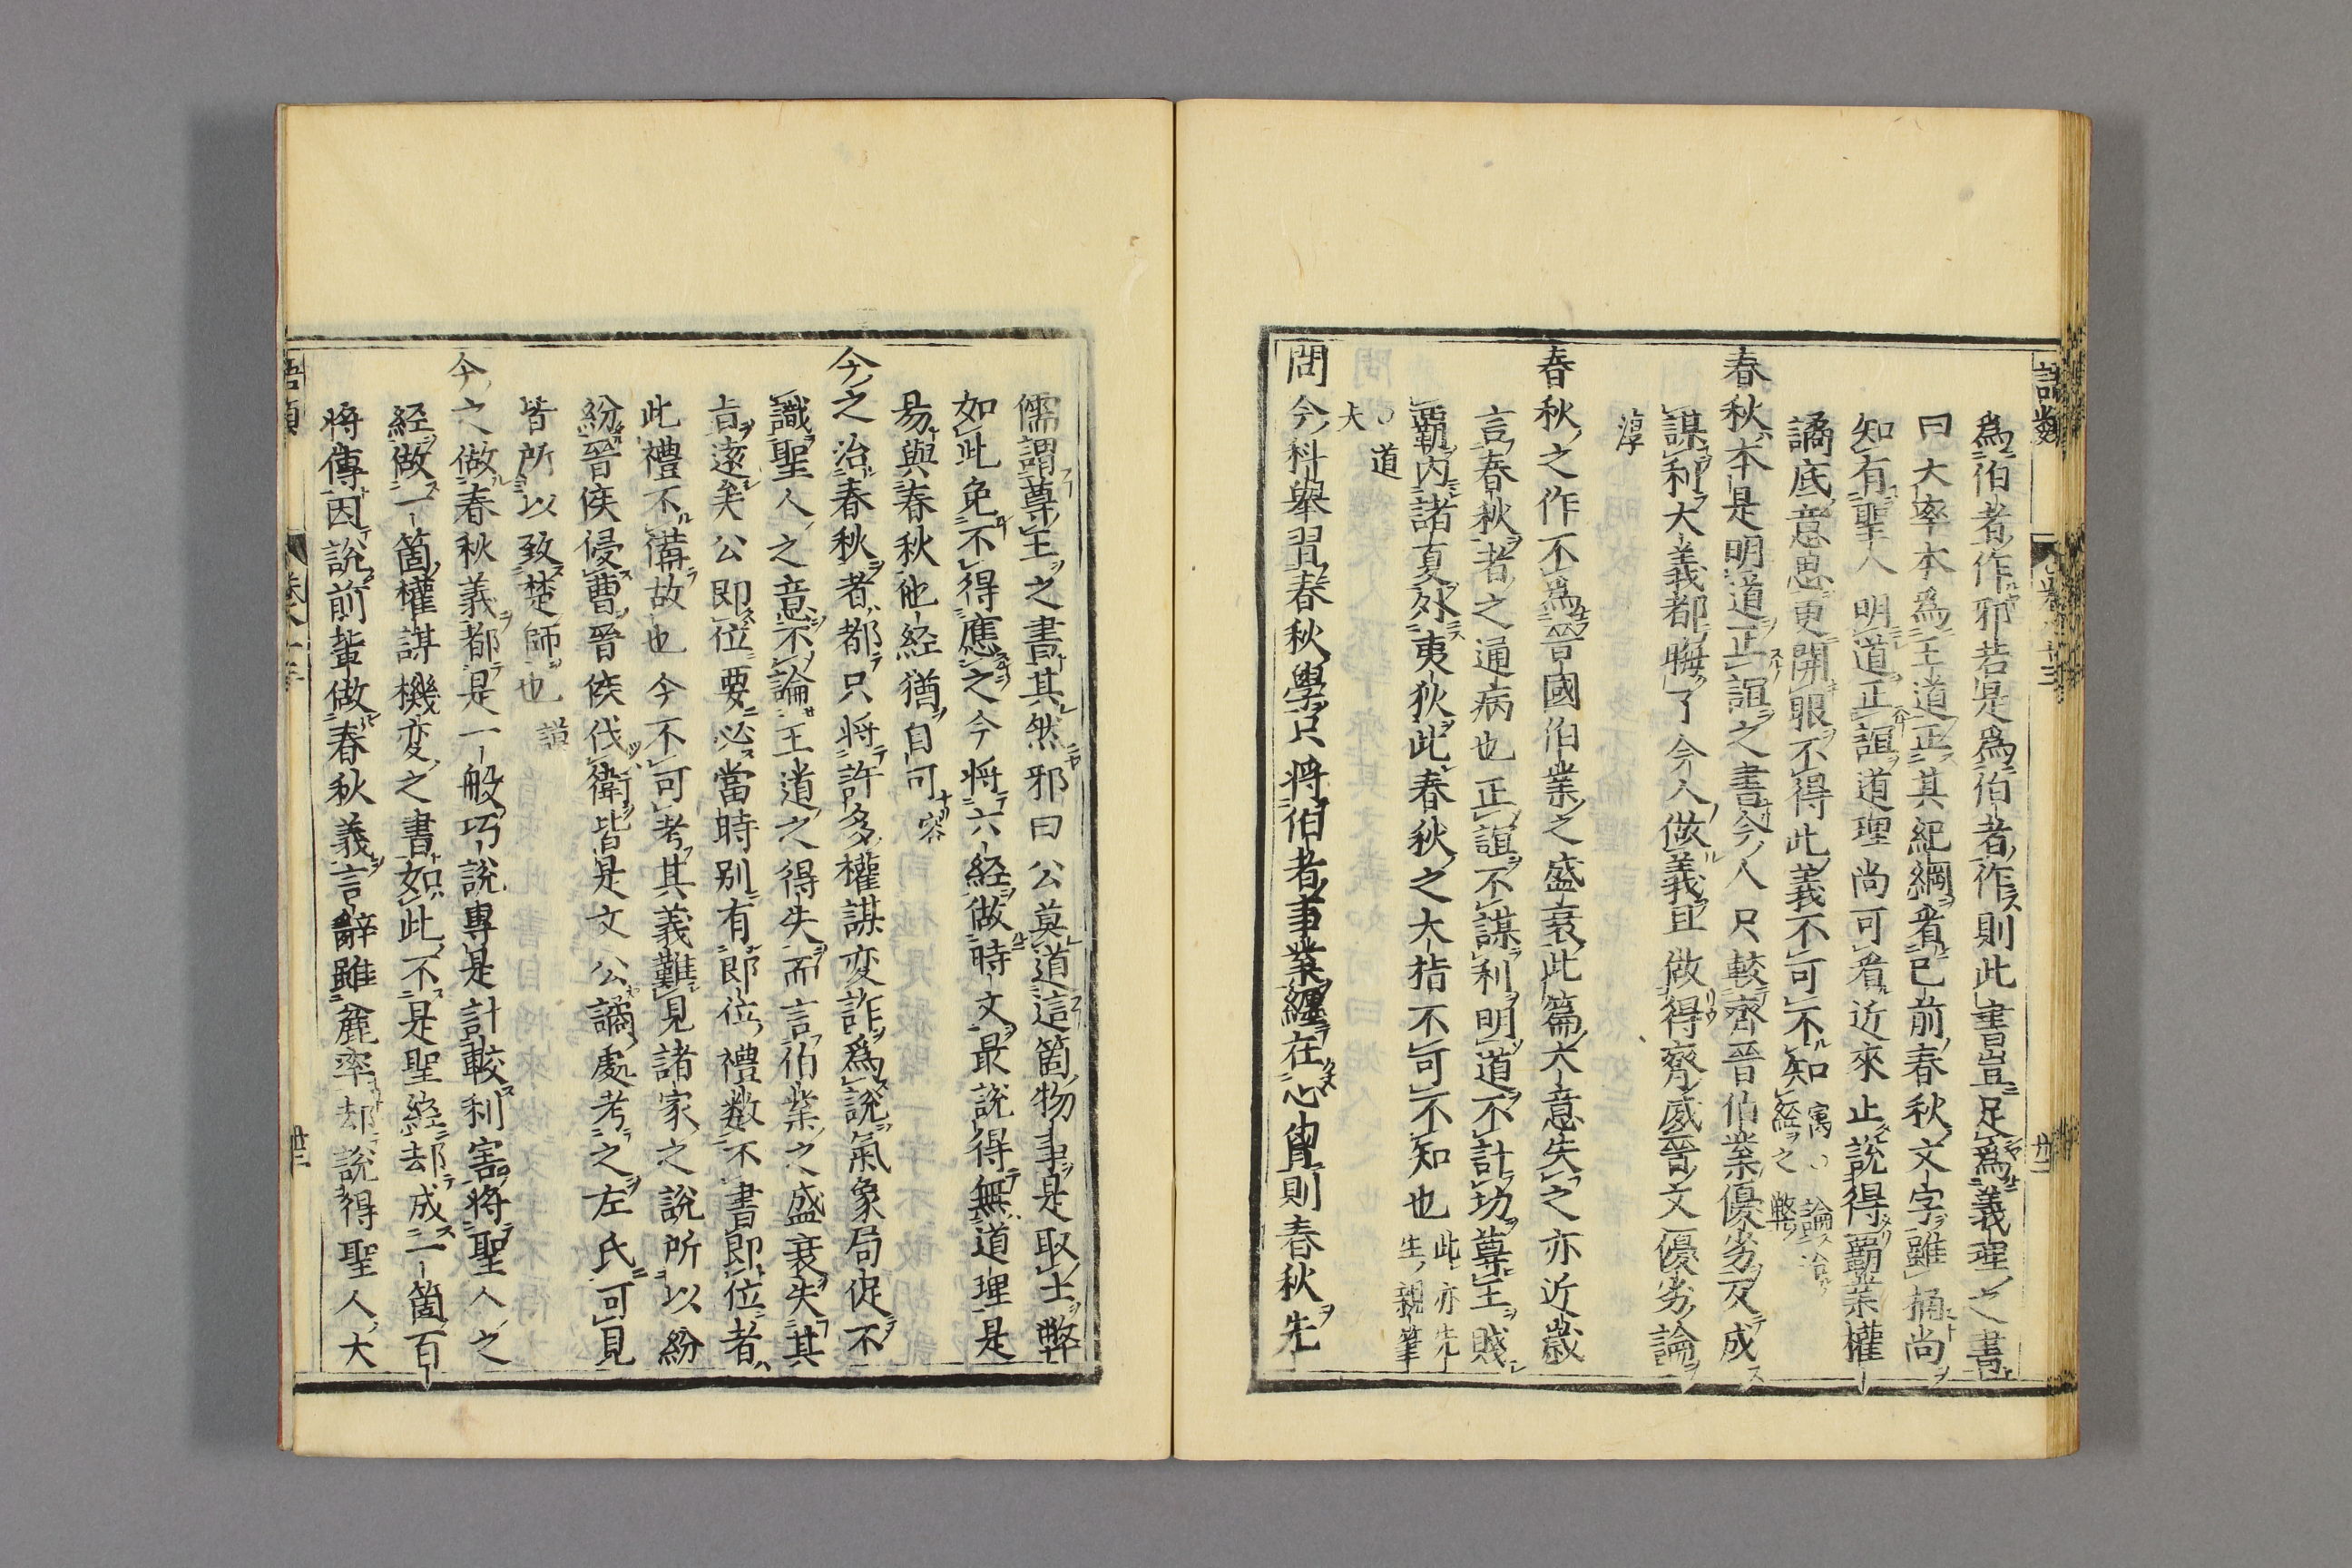 語類 卷八十三 廿二
爲伯者作邪若是爲伯者作則此書豈足爲義理之書
曰大率本爲王道正其紀綱看已前春秋文字雖𢫬尚
知有聖人明道正誼道理尚可看近來止說得霸業權
譎底意思更開眼不得此義不可不知寓○論治經之弊
春秋本是明道正誼之書今人只較齊晉伯業優劣反成
謀利大義都晦了今人做義且做得齊威晉文優劣論
淳
春秋之作不爲晉國伯業之盛衰此篇大意失之亦近歲
言春秋者之通病也正誼不謀利明道不計功尊王賤
霸內諸夏外夷狄此春秋之大指不可不知也此亦先生親筆
○道夫
問今科舉習春秋學只將伯者事業纏在心胷則春秋先
儒謂尊王之書其然邪曰公莫道這箇物事是取士弊
如此免不得應之今將六經做時文最說得無道理是
易與春秋他經猶自可容
今之治春秋者都只將許多權謀変詐爲說氣象局促不
識聖人之意不論王道之得失而言伯業之盛衰失其
旨遠矣公即位要必當時別有即位禮数不書即位者
此禮不講故也今不可考其義難見諸家之說所以紛
紛晉侯侵曹晉侯伐衛皆是文公譎處考之左氏可見
皆所以致楚師也謨
今之做春秋義都是一般巧說專是計較利害將聖人之
経做一箇權謀機変之書如此不是聖経却成一箇百
將傳因說前輩做春秋義言辭雖麁率却說得聖人大
語類 卷八十三 廿二